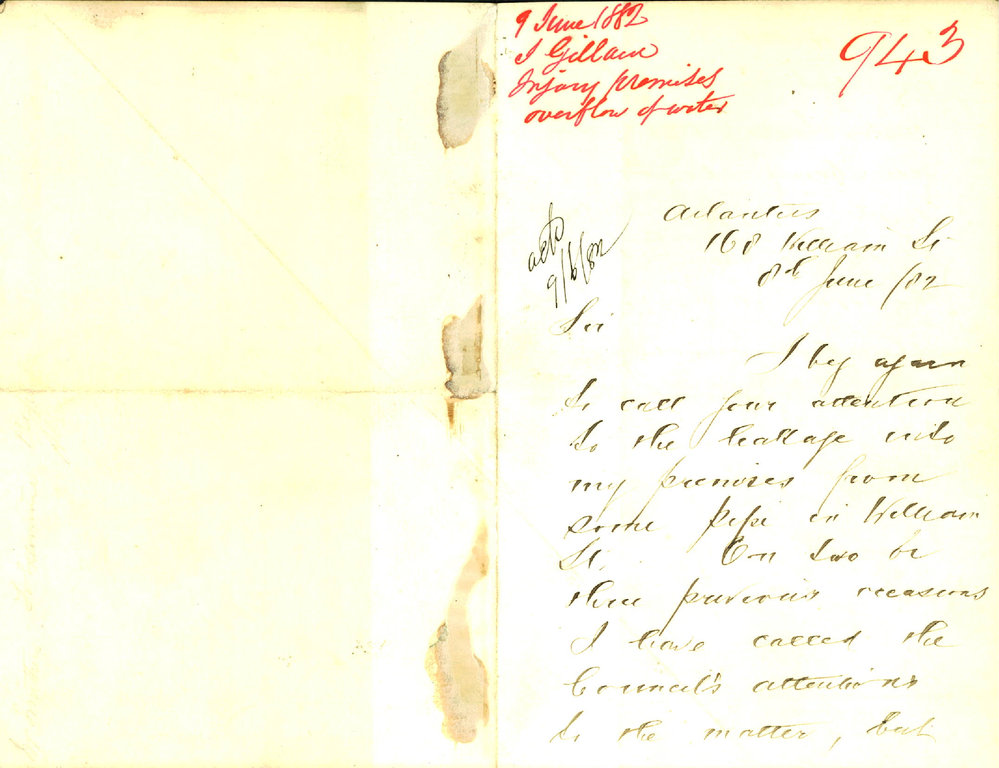 9 June 1882
J Gillam
Injury premises
overflow of water
943
9/6/82
168 William St
8th June /82
Sir
I beg again
to call your attention
to the leakage into
my premises from
some pipe in William
St. On two or
three previous occasions
I have called the
Council's attentions
to the matter, but